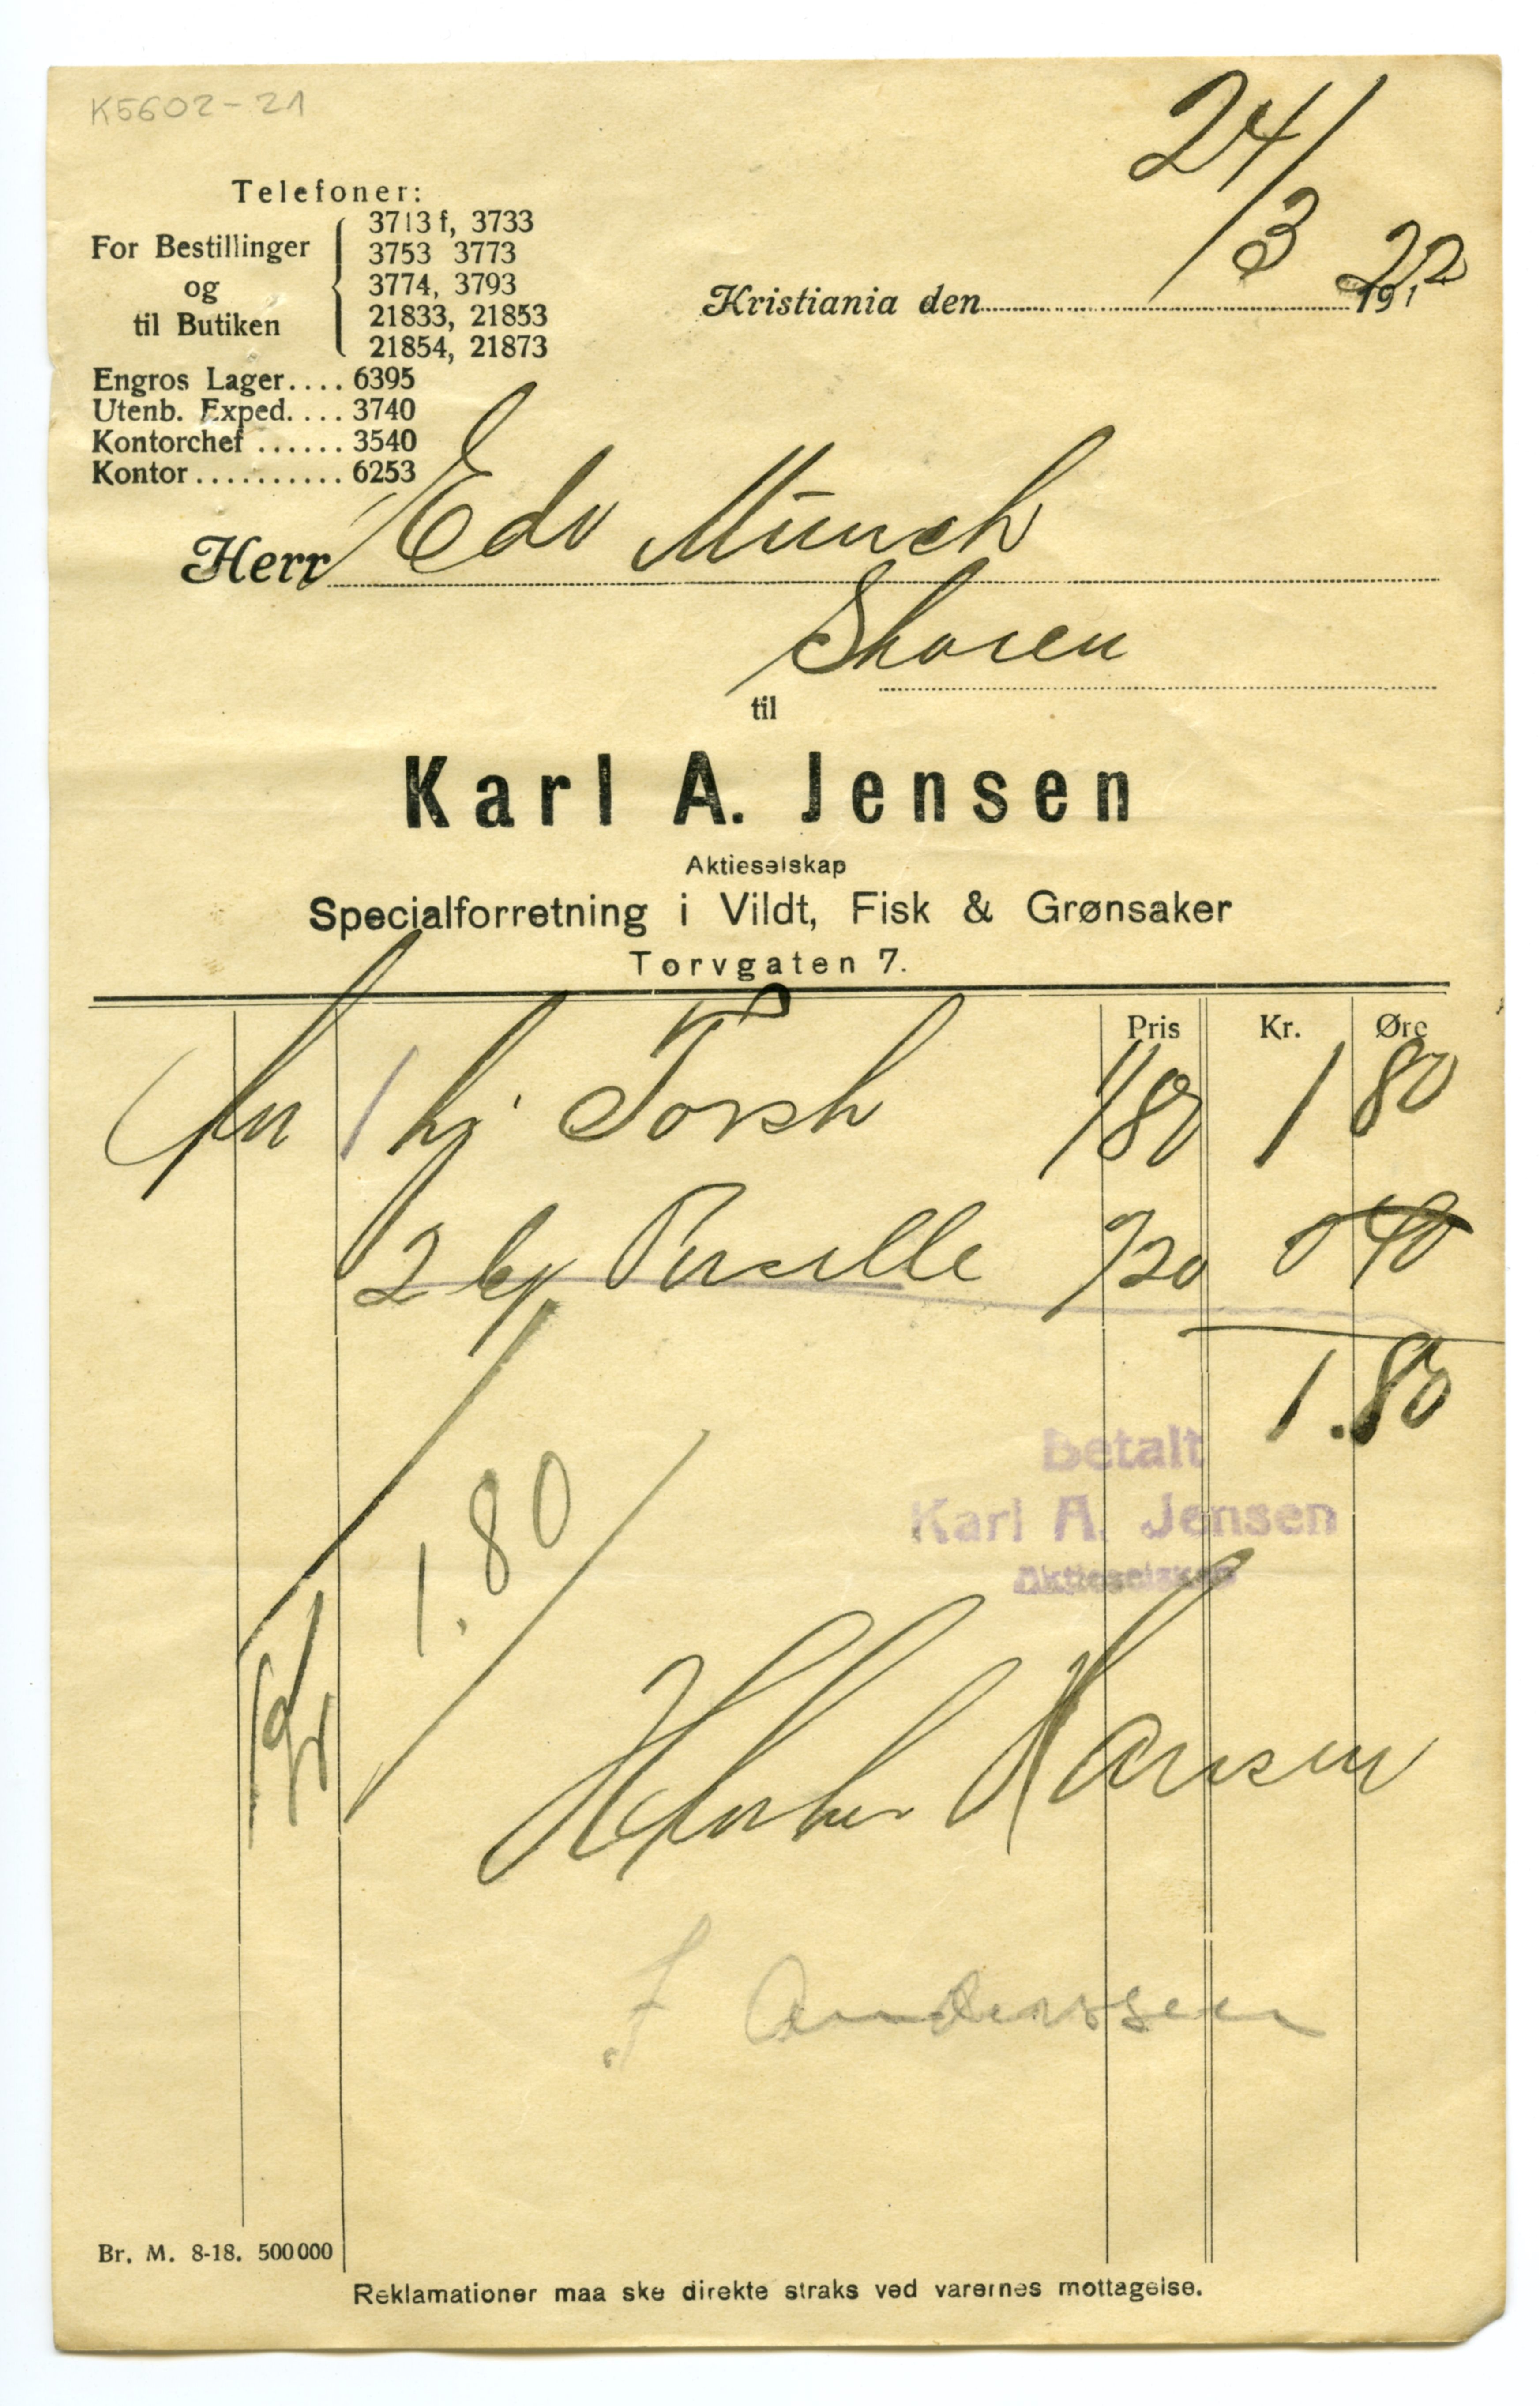 K5602-21
Telefoner:
For Bestillinger
og
til Butiken
3713 f, 3733
3753 3773
3774, 3793
21833, 21853
21854, 21873
Engros Lager.... 6395
Utenb. Exped. ... 3740
Kontorchef ...... 3540
Kontor.......... 6253
24/3 22
Kristiania den 191
Herr Edv Münch
Skøien
til
Karl A. Jensen
Aktieselskap
Specialforretning i Vildt, Fisk & Grønsaker
Torvgaten 7.
Pris Kr. Øre
1 kg Torsk 1/80 1 80
2 Persille /20 0 40
1.80
1.80
Betalt
Karl A. Jensen
Aktieselskap
Hansen
Anderssen
Br. M. 8-18. 500 000
Reklamationer maa ske direkte straks ved varernes mottagelse.